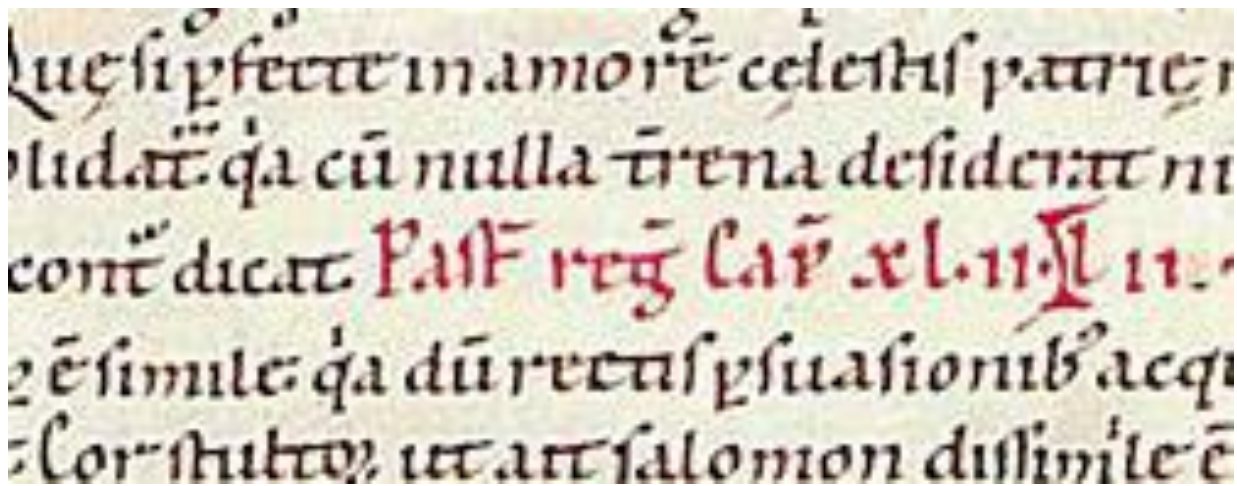 Quę si ꝑfecte in amorē cęlestis patrię
lidat̄ qͥa cū nulla t̄rena desiderat
cont̄ dicat Past̄ reḡ Cap̄ xl.ii.
ē simile qͥa dū rectis ꝑsuasionib' acq
Cor stultoꝝ ut ait salomon dissimͥle ē